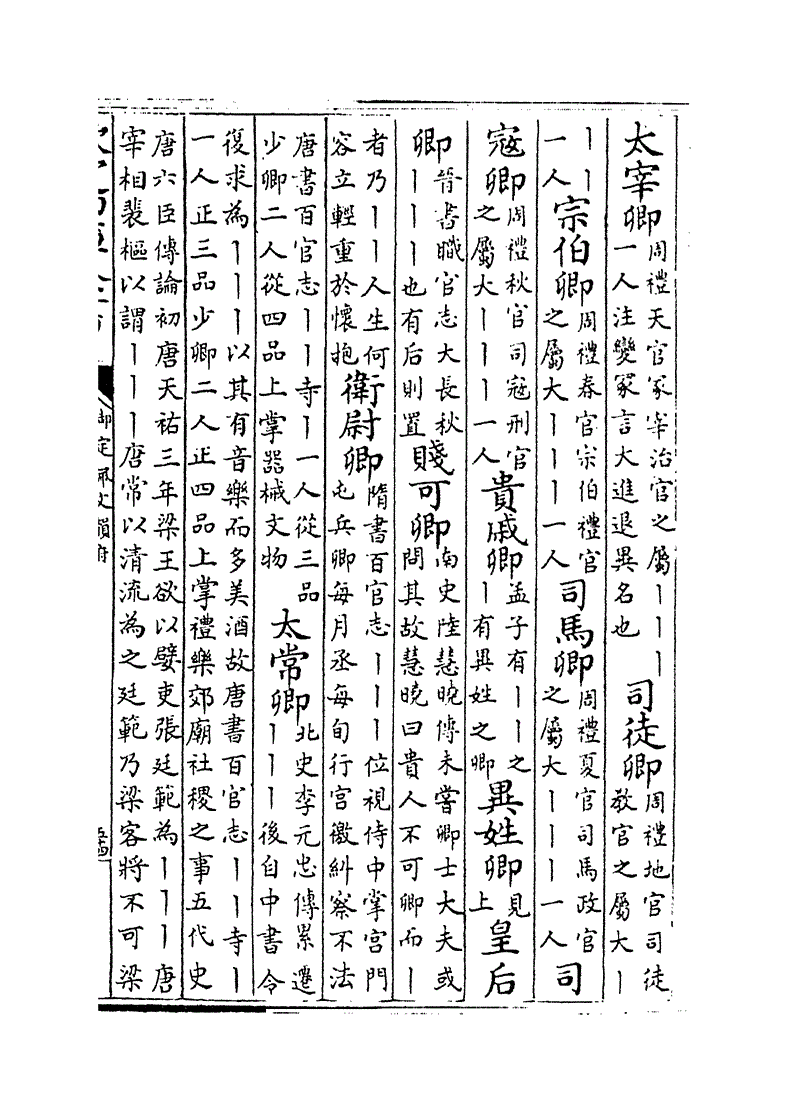 太宰卿周禮天官冢宰治官之屬丨丨丨一人注變冢言大進退異名也司徒卿周禮地官司徒教官之屬大丨
丨丨一人宗伯卿周禮春官宗伯禮官之屬大丨丨丨一人司馬卿周禮夏官司馬政官之屬大丨丨丨一人司
寇卿周禮秋官司寇刑官之屬大丨丨丨一人貴戚卿孟子有丨丨之丨有異姓之卿異姓卿見上皇后
卿晉書職官志大長秋丨丨丨也有后則置賤可卿南史陸慧曉傳未嘗卿士大夫或問其故慧曉曰貴人不可卿而丨
者乃丨丨人生何容立輕重於懷抱衛尉卿隋書百官志丨丨丨位視侍中掌宮門屯兵卿每月丞每旬行宮徼糾察不法
唐書百官志丨丨寺丨一人從三品少卿二人從四品上掌器械文物太常卿北史李元忠傳累遷丨丨丨後自中書令
復求為丨丨丨以其有音樂而多美酒故唐書百官志丨丨寺丨一人正三品少卿二人正四品上掌禮樂郊廟社稷之事五代史
唐六臣傳論初唐天祐三年梁王欲以嬖吏張廷範為丨丨丨唐宰相裴樞以謂丨丨丨唐常以清流為之廷範乃梁客將不可梁
御定佩文韻府